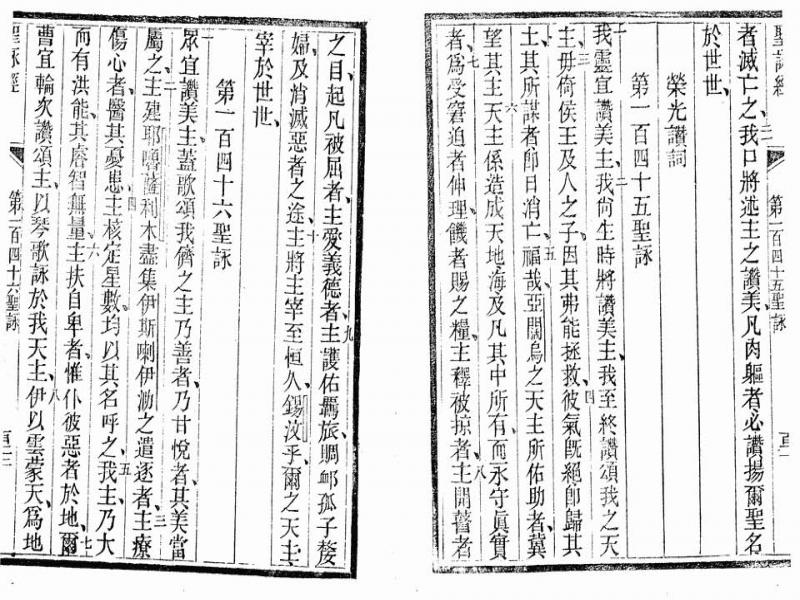 聖詠經
第一百四十五聖詠
者滅亡之、我口將述主之讚美、凡肉軀者必讚揚爾聖名
於世世、
榮光讚詞
第一百四十五聖詠
一我靈宜讚美主、二我尚生時將讚美主、我至終讚頌我之天
主、三毋倚侯王及人之子、因其弗能拯救、四彼氣旣絕卽歸其
土、其所謀者卽日消亡、五福哉、亞闊烏之天主所佑助者、冀
望其主天主、六係造成天地海及凡其中所有、而永守眞實
者、七爲受窘迫者伸理、饑者賜之糧、主釋被掠者、八主開瞽者
之目、起凡被屈者、主愛義德者、九主護佑羈旅、賙卹孤子嫠
婦、及消滅惡者之途、十主將主宰至恒久、錫汶乎、爾之天主
宰於世世、
第一百四十六聖詠
一眾宜讚美主、蓋歌頌我儕之主乃善者、乃甘悅者、其美當
屬之、二主建耶嚕薩利木、盡集伊斯喇伊泐之遣逐者、三主療
傷心者、醫其憂患、四主核定星數、均以其名呼之、五我主乃大
而有洪能、其睿智無量、六主扶自卑者、惟仆彼惡者於地、七爾
曹宜輪次讚頌主、以琴歌詠於我天主、八伊以雲蒙天、爲地
聖詠經
第一百四十六聖詠